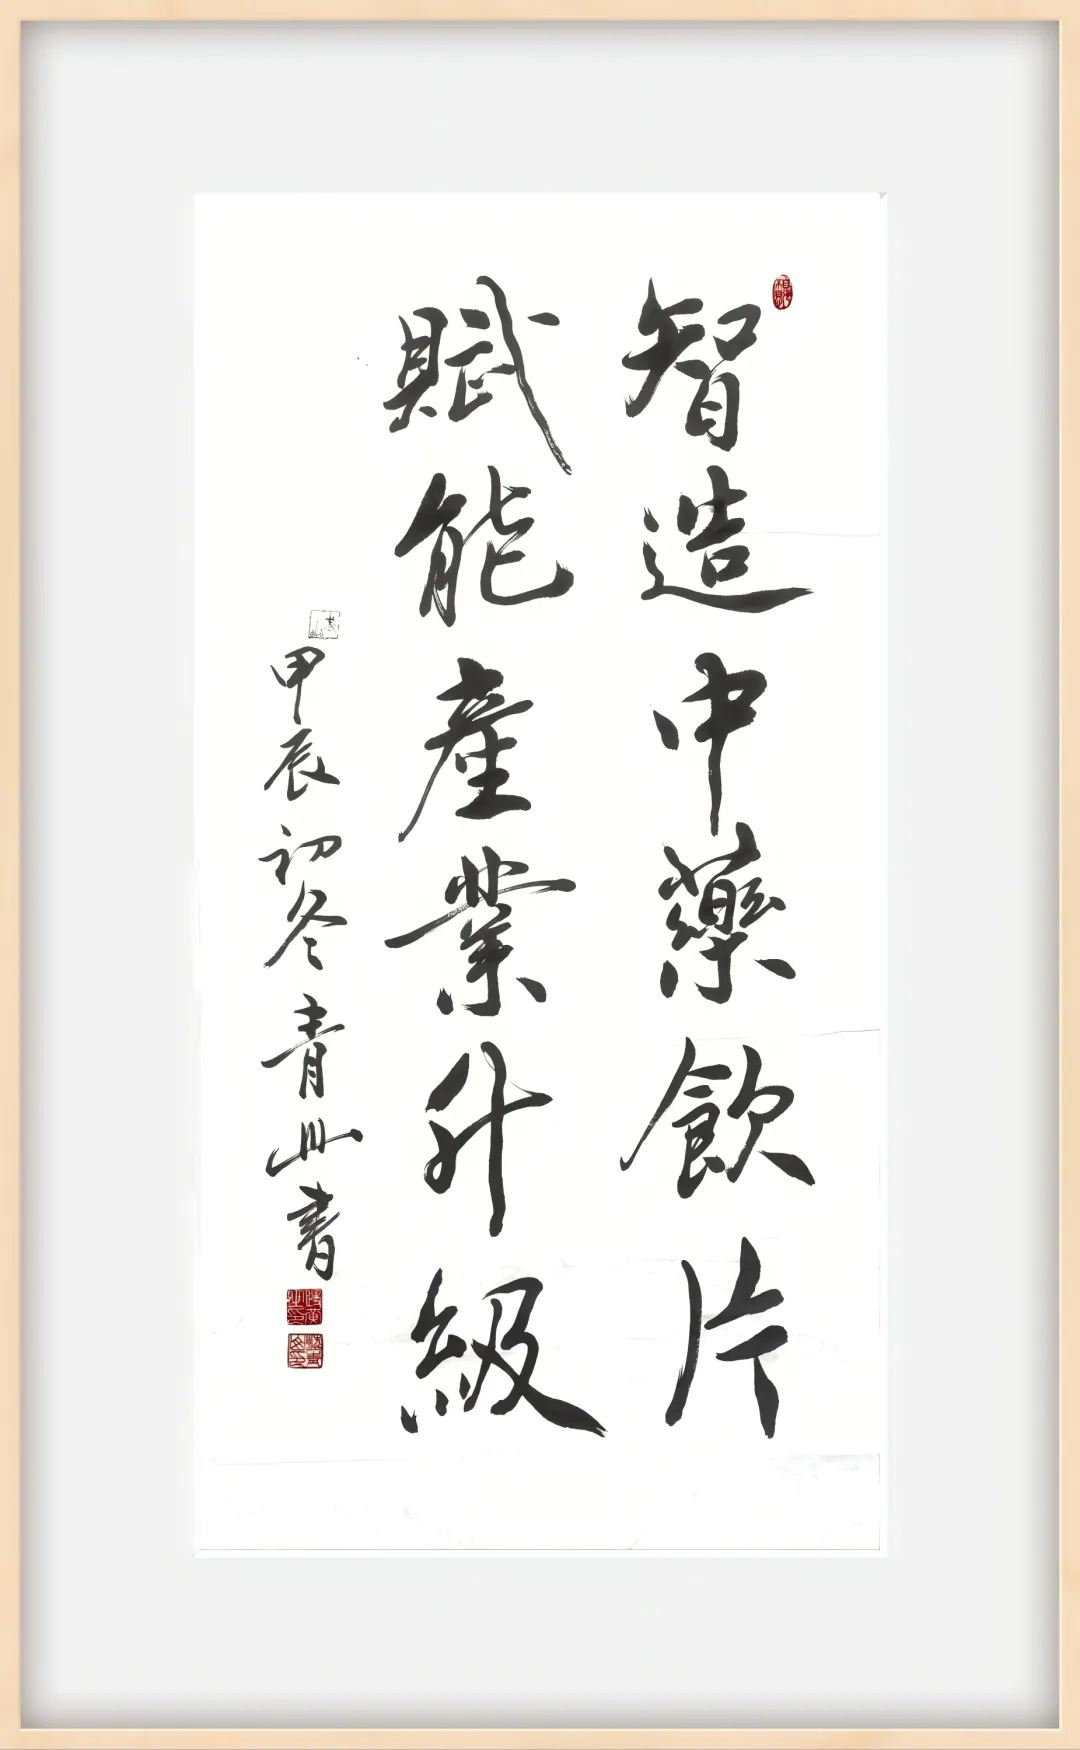 智造中藥飲片
賦能產業升級
甲辰初冬青山書